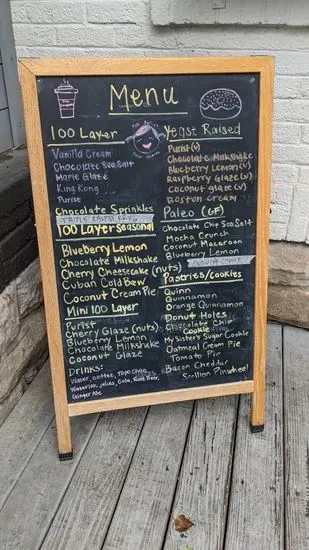 Menu
100 Layer
Vanilla Cream
Chocolate Sea Salt
Marie Glaze
King Kong
Purist
Chocolate Sprinkles
TRIPLE RASPBERRY
100 Layer Seasonal
Blueberry Lemon
Chocolate Milkshake
Cherry Cheesecake (nuts)
Cuban Cold Brew
Coconut Cream Pie
Mini 100 Layer
Purist
Cherry Glaze (nuts)
Blueberry Lemon
Chocolate Milkshake
Coconut Glaze
Drinks:
Water, coffee, Topo Chico,
Waterloo, juices, Coke, Root Beer,
Ginger Ale
Yeast Raised
Purist (v)
Chocolate Milkshake
Blueberry Lemon (v)
Raspberry Glaze (v)
Coconut glaze (v)
Boston Cream
Paleo (GF)
Chocolate Chip Sea Salt
Mocha Crunch
Coconut Macaroon
Blueberry Lemon
Pastries/Cookies
Quinn
Quinnamon
Orange Quinnamon
Donut Holes
Chocolate Chip
Cookie
My Sister's Sugar Cookie
Oatmeal Cream Pie
Tomato Pie
Bacon Cheddar
Scallion Pinwheel